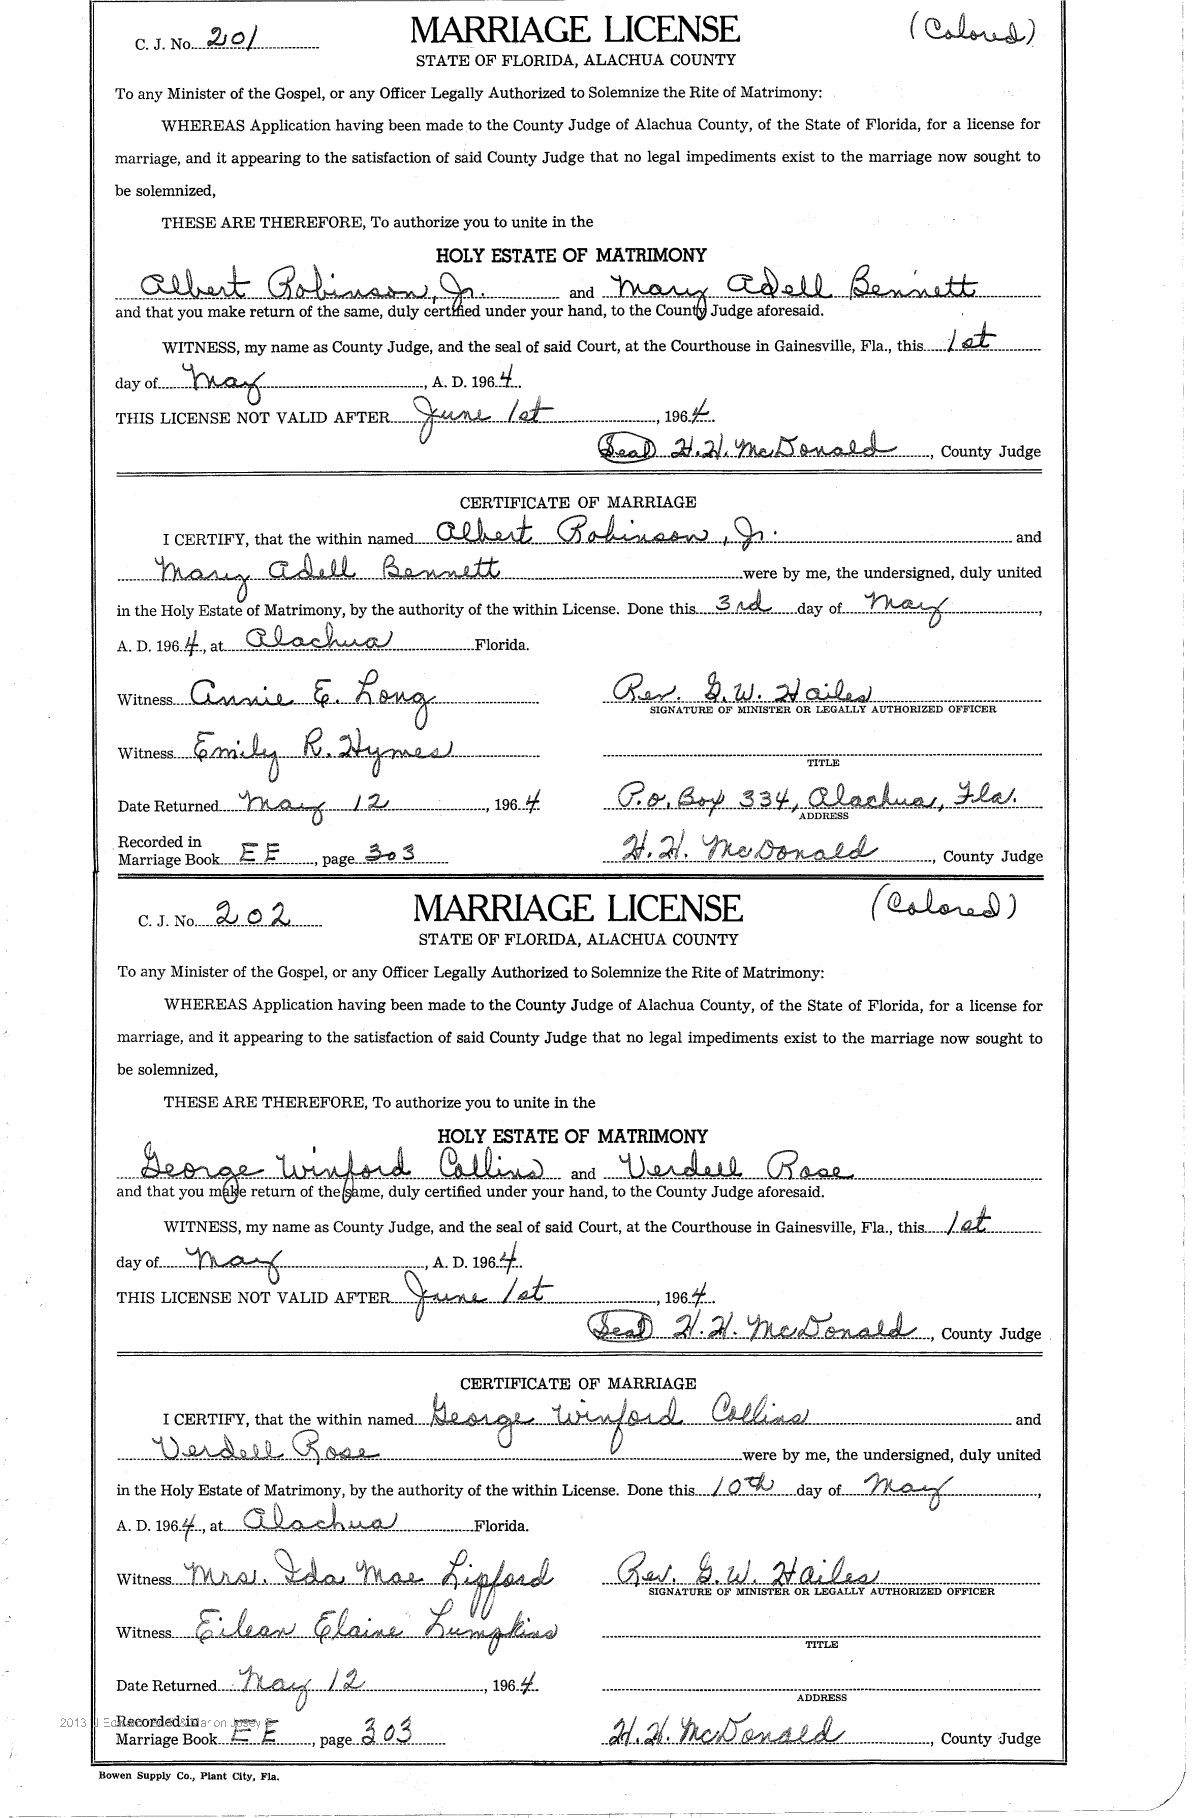 C. J. No. 201 MARRIAGE LICENSE (Colored)
STATE OF FLORIDA, ALACHUA COUNTY
To any Minister of the Gospel, or any Officer Legally Authorized to Solemnize the Rite of Matrimony:
WHEREAS Application having been made to the County Judge of Alachua County, of the State of Florida, for a license for
marriage, and it appearing to the satisfaction of said County Judge that no legal impediments exist to the marriage now sought to
be solemnized,
THESE ARE THEREFORE, To authorize you to unite in the
HOLY ESTATE OF MATRIMONY
Albert Robinson, Jr. and Mary Adell Bennett
and that you make return of the same, duly certified under your hand, to the County Judge aforesaid.
WITNESS, my name as County Judge, and the seal of said Court, at the Courthouse in Gainesville, Fla., this 1st
day of May, A. D. 1964.
THIS LICENSE NOT VALID AFTER June 1st, 1964.
(Seal) H. H. McDonald, County Judge
CERTIFICATE OF MARRIAGE
I CERTIFY, that the within named Albert Robinson, Jr. and
Mary Adell Bennett were by me, the undersigned, duly united
in the Holy Estate of Matrimony, by the authority of the within License. Done this 3rd day of May,
A. D. 1964, at Alachua Florida.
Witness Annie E. Long Rev. G. W. Hailes
SIGNATURE OF MINISTER OR LEGALLY AUTHORIZED OFFICER
Witness Emily R. Hymes
TITLE
Date Returned May 12, 1964 P.O. Box 334, Alachua, Fla.
ADDRESS
Recorded in
Marriage Book EE, page 303 H. H. McDonald, County Judge
C. J. No. 202 MARRIAGE LICENSE (Colored)
STATE OF FLORIDA, ALACHUA COUNTY
To any Minister of the Gospel, or any Officer Legally Authorized to Solemnize the Rite of Matrimony:
WHEREAS Application having been made to the County Judge of Alachua County, of the State of Florida, for a license for
marriage, and it appearing to the satisfaction of said County Judge that no legal impediments exist to the marriage now sought to
be solemnized,
THESE ARE THEREFORE, To authorize you to unite in the
HOLY ESTATE OF MATRIMONY
George Winford Collins and Verdell Rose
and that you make return of the same, duly certified under your hand, to the County Judge aforesaid.
WITNESS, my name as County Judge, and the seal of said Court, at the Courthouse in Gainesville, Fla., this 1st
day of May, A. D. 1964.
THIS LICENSE NOT VALID AFTER June 1st, 1964.
(Seal) H. H. McDonald, County Judge
CERTIFICATE OF MARRIAGE
I CERTIFY, that the within named George Winford Collins and
Verdell Rose were by me, the undersigned, duly united
in the Holy Estate of Matrimony, by the authority of the within License. Done this 10th day of May,
A. D. 1964, at Alachua Florida.
Witness Mrs. Ida Mae Lipford Rev. G. W. Hailes
SIGNATURE OF MINISTER OR LEGALLY AUTHORIZED OFFICER
Witness Eilean Elaine Lumpkins
TITLE
Date Returned May 12, 1964
ADDRESS
2013 Recorded in
Marriage Book EE, page 303 H. H. McDonald, County Judge
Bowen Supply Co., Plant City, Fla.